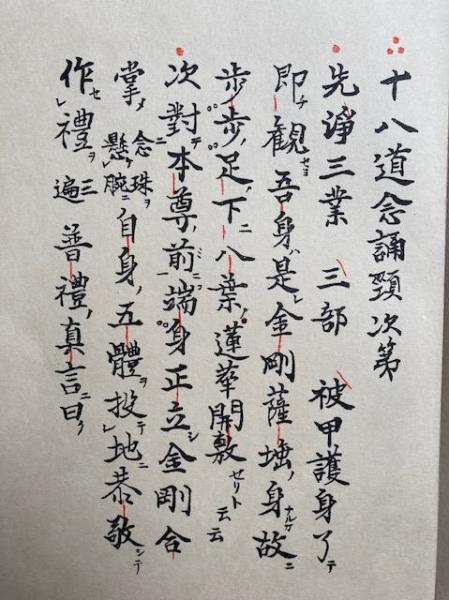 十八道念誦頸次第
先淨三業 三部 被甲護身了テ
即チ觀セヨ吾身ハ是レ金剛薩埵ノ身ナルカ故ニ
歩歩ノ足ノ下ニ八葉ノ蓮華開敷セリト云云
次對テ本尊ノ前ニ端身正立シ金剛合
掌メ念珠ヲ懸ケ腕ニ自身ノ五體ヲ投テ地ニ恭敬シテ
作セレ禮ヲ三遍 普禮ノ真言ニ曰ク